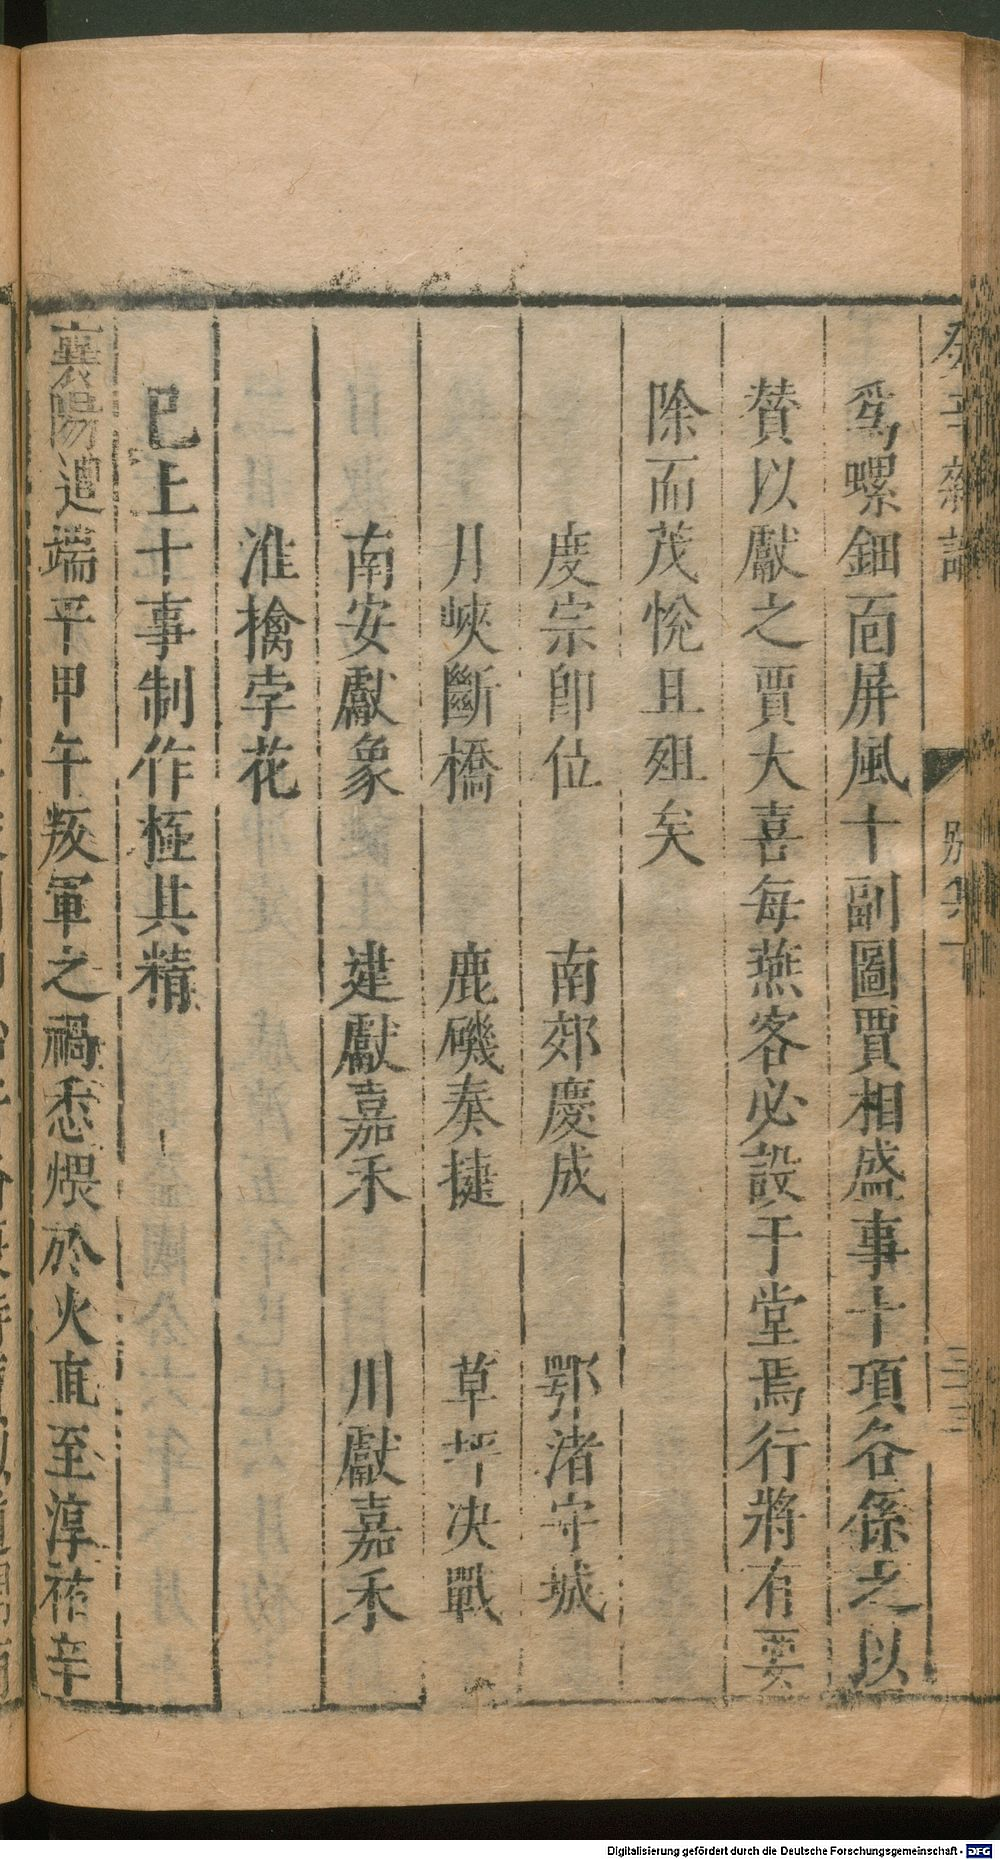 癸辛雜識
別集下
三三
爲螺鈿面屏風十副圖賈相盛事十項各係之以
贊以獻之賈大喜每燕客必設于堂焉行將有要
除而茂悅且殂矣
度宗卽位　南郊慶成　鄂渚守城
月峽斷橋　鹿磯奏捷　草坪决戰
南安獻象　建獻嘉禾　川獻嘉禾
淮擒孛花
已上十事制作極其精
襄陽迎端平甲午叛軍之禍悉煨於火直至淳祐辛
Digitalisierung gefördert durch die Deutsche Forschungsgemeinschaft - DFG